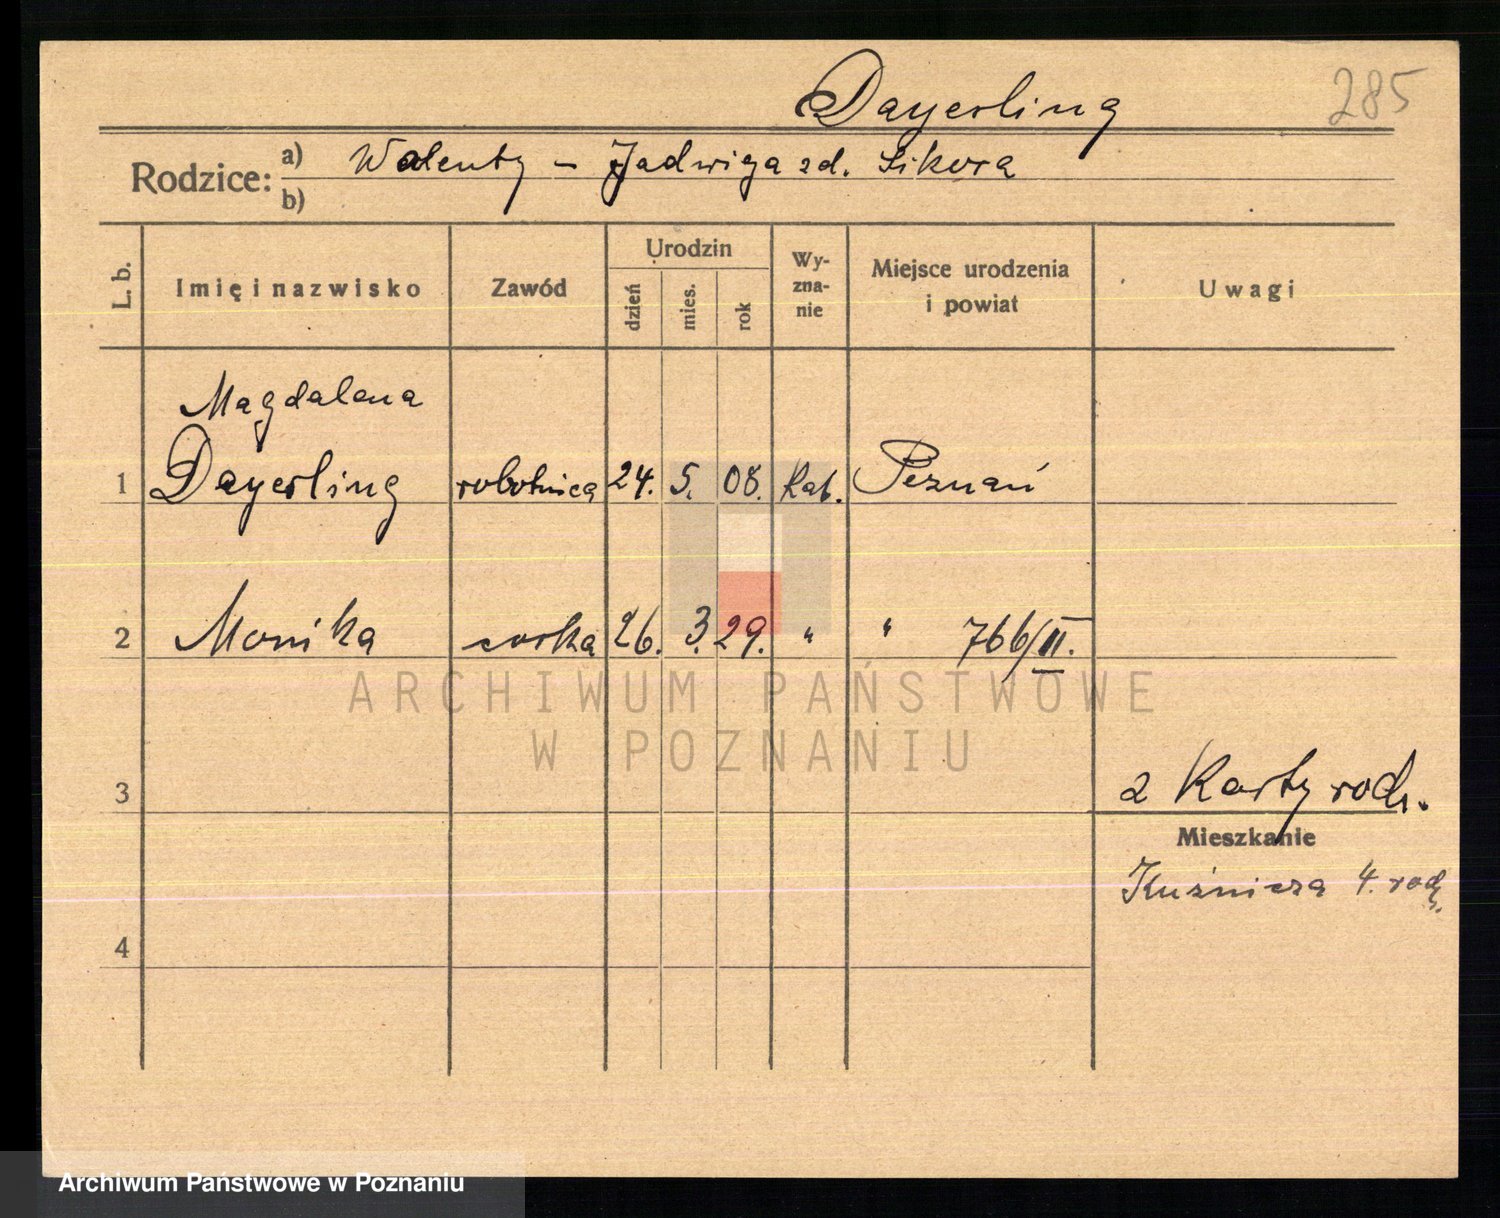 Dayerling 285
Rodzice: a) Walenty – Jadwiga zd. Sikora
b)
L. b. Imię i nazwisko Zawód Urodzin dzień mies. rok Wy-zna-nie Miejsce urodzenia i powiat Uwagi
Magdalena
1 Dayerling robotnica 24. 5. 08. Kat. Poznań
2 Monika corka 26. 3. 29. " " 766/II.
ARCHIWUM PAŃSTWOWE
W POZNANIU
3 z Karty rodz.
Mieszkanie
Kuźnicza 4. rodz.
4
Archiwum Państwowe w Poznaniu